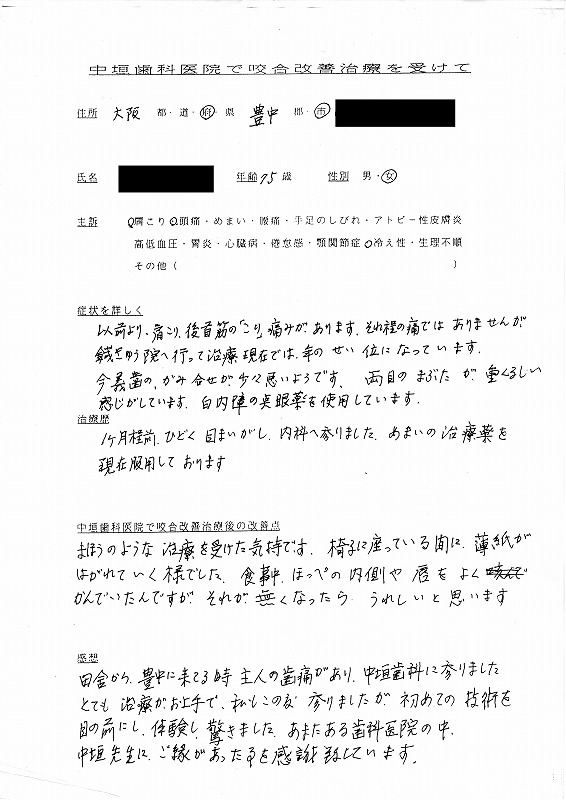 中垣歯科医院で咬合改善治療を受けて
住所 大阪 都・道・府・県 豊中 郡・市
氏名 年齢 75歳 性別 男・女
主訴 肩こり・頭痛・めまい・腰痛・手足のしびれ・アトピー性皮膚炎
高低血圧・胃炎・心臓病・倦怠感・顎関節症・冷え性・生理不順
その他( )
症状を詳しく
以前より、肩こり、後首筋の「こり」痛みがあります。それ程の痛ではありませんが
鍼きゅう院へ行って治療現在では、年のせい位になっています。
今義歯の、かみ合せが少々悪いようです、両目のまぶたが、重くるしい
感じがしています、白内障の点眼薬を使用しています.
治療歴
1ヶ月程前、ひどく目まいがし、内科へ参りました、めまいの治療薬を
現在服用しております
中垣歯科医院で咬合改善治療後の改善点
まほうのような治療を受けた気持です、椅子に座っている間に、薄紙が
はがれていく様でした、食事中、ほっぺの内側や唇をよく
かんでいたんですが、それが無くなったら、うれしいと思います
感想
田舎から、豊中に来てる時主人の歯痛があり、中垣歯科に参りました
とても治療がお上手で、私もこの度参りましたが初めての技術を
目の前にし、体験し、驚きました、あまたある歯科医院の中、
中垣先生に、ご縁があった事を感謝致しています。